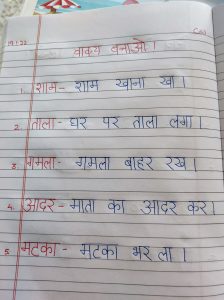 वाक्य बनाओ।
1. शाम - शाम खाना खा।
2. ताला - घर पर ताला लगा।
3. गमला - गमला बाहर रख।
4. आदर - माता का आदर कर।
5. मटका - मटका भर ला।